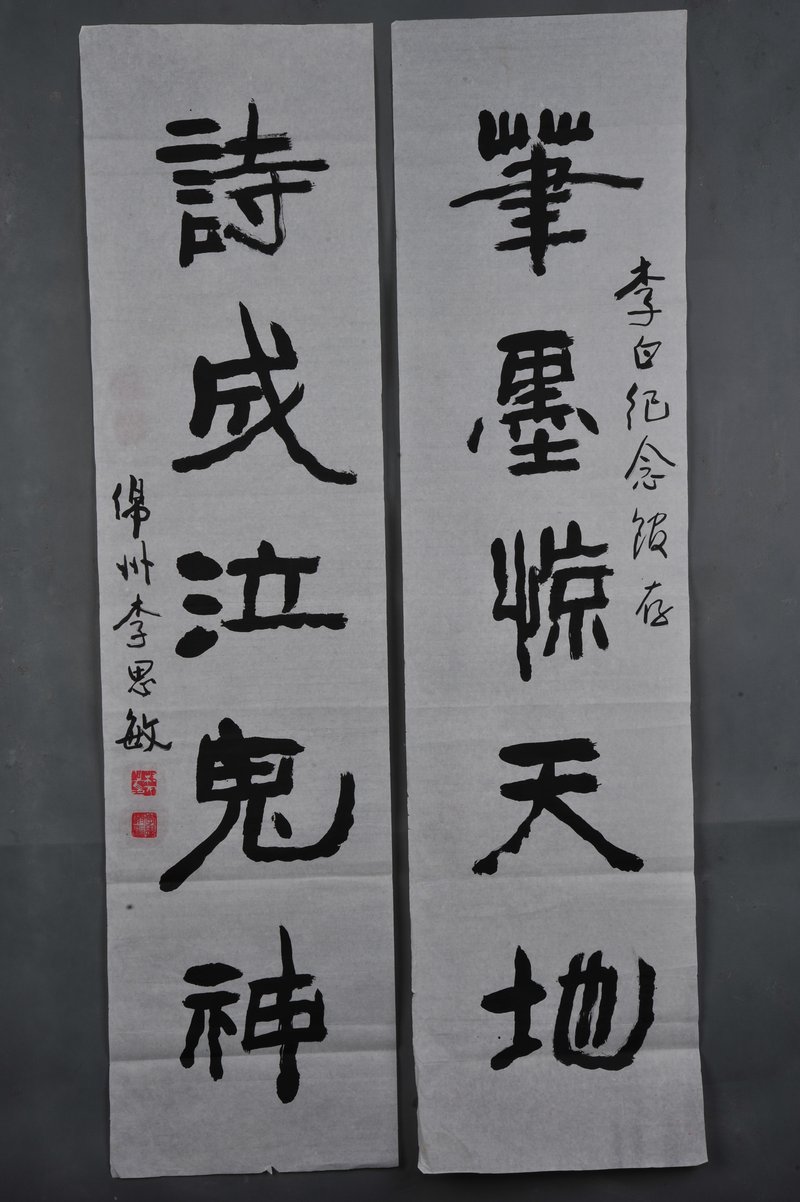 筆墨惊天地
李白纪念馆存
詩成泣鬼神
绵州李思敏